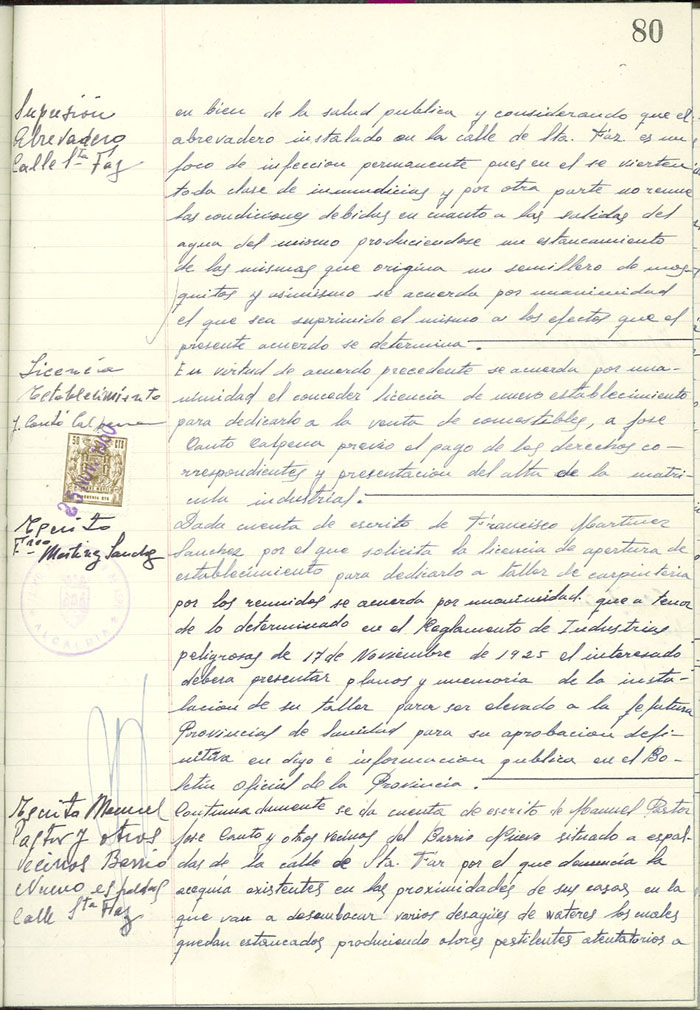 80
Supresión
Abrevadero
Calle Sta Faz
en bien de la salud publica y considerando que el
abrevadero instalado en la calle de Sta. Faz es un
foco de infeccion permanente pues en el se vierten
toda clase de inmundicias y por otra parte no reune
las condiciones debidas en cuanto a las salidas del
agua del mismo produciendose un estancamiento
de las mismas que origina un semillero de mos-
quitos y asimismo se acuerda por unanimidad
el que sea suprimido el mismo a los efectos que el
presente acuerdo se determina.
Licencia
Establecimiento
J. Cantó Calpena
En virtud de acuerdo precedente se acuerda por una-
nimidad el conceder licencia de nuevo establecimiento
para dedicarlo a la venta de comestibles, a Jose
Canto Calpena previo el pago de los derechos co-
rrespondientes y presentacion del alta de la matri-
cula industrial.
50 CTS
25 NOV
Escrito
Fco
Martinez Sanchez
ALCALDIA
Dada cuenta de escrito de Francisco Martinez
Sanchez por el que solicita la licencia de apertura de
establecimiento para dedicarlo a taller de carpinteria
por los reunidos se acuerda por unanimidad que a tenor
de lo determinado en el Reglamento de Industrias
peligrosas de 17 de Noviembre de 1925 el interesado
debera presentar planos y memoria de la insta-
lacion de su taller para ser elevado a la Jefatura
Provincial de Sanidad para su aprobacion defi-
nitiva en digo e informacion publica en el Bo-
letin Oficial de la Provincia.
Escrito Manuel
Pastor y otros
vecinos Barrio
Nuevo espaldas
Calle Sta Faz
Continuadamente se da cuenta de escrito de Manuel Pastor
Jose Canto y otros vecinos del Barrio Nuevo situado a espal-
das de la calle de Sta. Faz por el que denuncia la
acequia existentes en las proximidades de sus casas en la
que van a desembocar varios desagües de wateres los cuales
quedan estancados produciendo olores pestilentes atentatorios a